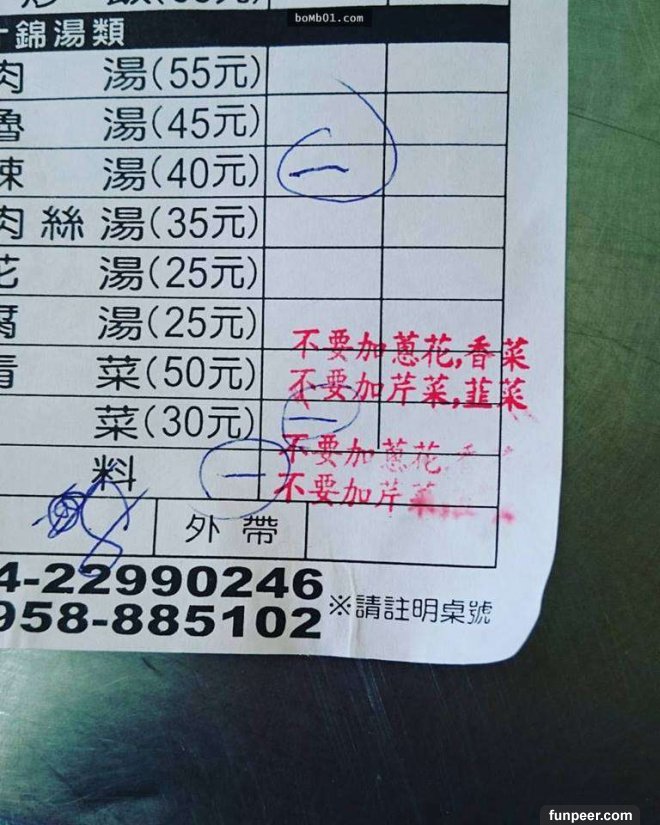 boMb01.com
錦湯類
肉 湯(55元)
魯 湯(45元)
辣 湯(40元)
一
肉絲湯(35元)
花 湯(25元)
腐 湯(25元)
不要加蔥花,香菜
青 菜(50元)
不要加芹菜,韭菜
菜(30元)
一
不要加蔥花,香
料
一
不要加芹菜
外帶
4-22990246
958-885102
※請註明桌號
funpeer.com